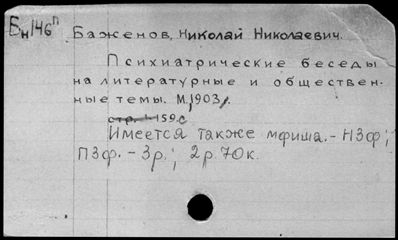 Бн146п Баженов, Николай Николаевич.
Психиатрические беседы
на литературные и обществен-
ные темы. М, 1903.
стр. 159с
Имеется также мфиша.- НЗф;
ПЗф. - 3р.; 2р. 70к.